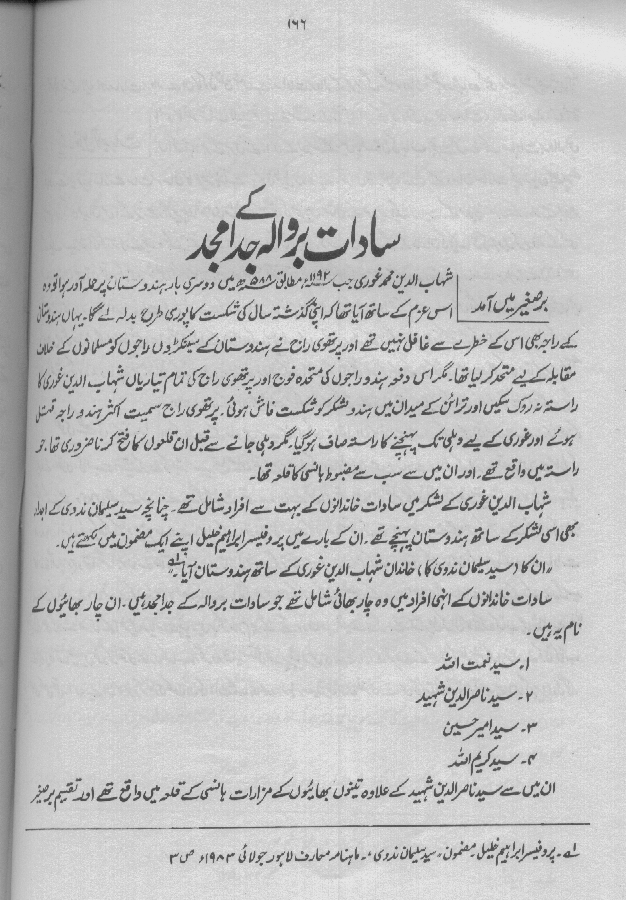 ۱۶۶
سادات بروالہ کے جد امجد
برصغیر میں آمد
شہاب الدین محمد غوری جب ۱۱۹۲ء مطابق ۵۸۸ھ میں دوسری بار ہندوستان پر حملہ آور ہوا تو وہ
اس عزم کے ساتھ آیا تھا کہ اپنی گذشتہ سال کی شکست کا پوری طرح بدلہ لے گا۔ یہاں ہندوستان
کے راجہ بھی اس کے خطرے سے غافل نہیں تھے اور پرتھوی راج نے ہندوستان کے سینکڑوں راجوں کو مسلمانوں کے خلاف
مقابلہ کے لیے متحد کر لیا تھا۔ مگر اس دفعہ ہندو راجوں کی متحدہ فوج اور پرتھوی راج کی تمام تیاریاں شہاب الدین غوری کا
راستہ نہ روک سکیں اور ترائن کے میدان میں ہندو لشکر کو شکست فاش ہوئی۔ پرتھوی راج سمیت اکثر ہندو راجہ قتل
ہوئے اور غوری کے لیے دہلی تک پہنچنے کا راستہ صاف ہو گیا۔ مگر دہلی جانے سے قبل ان قلعوں کا فتح کرنا ضروری تھا۔ جو
راستہ میں واقع تھے۔ اور ان میں سے سب سے مضبوط ہانسی کا قلعہ تھا۔
شہاب الدین غوری کے لشکر میں سادات خاندانوں کے بہت سے افراد شامل تھے۔ چنانچہ سید سلیمان ندوی کے اجداد
بھی اسی لشکر کے ساتھ ہندوستان پہنچے تھے۔ ان کے بارے میں پروفیسر ابراہیم خلیل اپنے ایک مضمون میں لکھتے ہیں۔
"ان کا (سید سلیمان ندوی کا) خاندان شہاب الدین غوری کے ساتھ ہندوستان آیا۔" ۱ے
سادات خاندانوں کے انہی افراد میں وہ چار بھائی شامل تھے جو سادات بروالہ کے جد امجد ہیں۔ ان چار بھائیوں کے
نام یہ ہیں۔
۱۔ سید نعمت اللہ
۲۔ سید ناصر الدین شہید
۳۔ سید امیر حسین
۴۔ سید کریم اللہ
ان میں سے سید ناصر الدین شہید کے علاوہ تینوں بھائیوں کے مزارات ہانسی کے قلعہ میں واقع تھے اور تقسیم برصغیر
۱ے۔ پروفیسر ابراہیم خلیل۔ مضمون۔ سید سلیمان ندوی،۔ ماہنامہ معارف لاہور جولائی ۱۹۸۳ء ص ۳